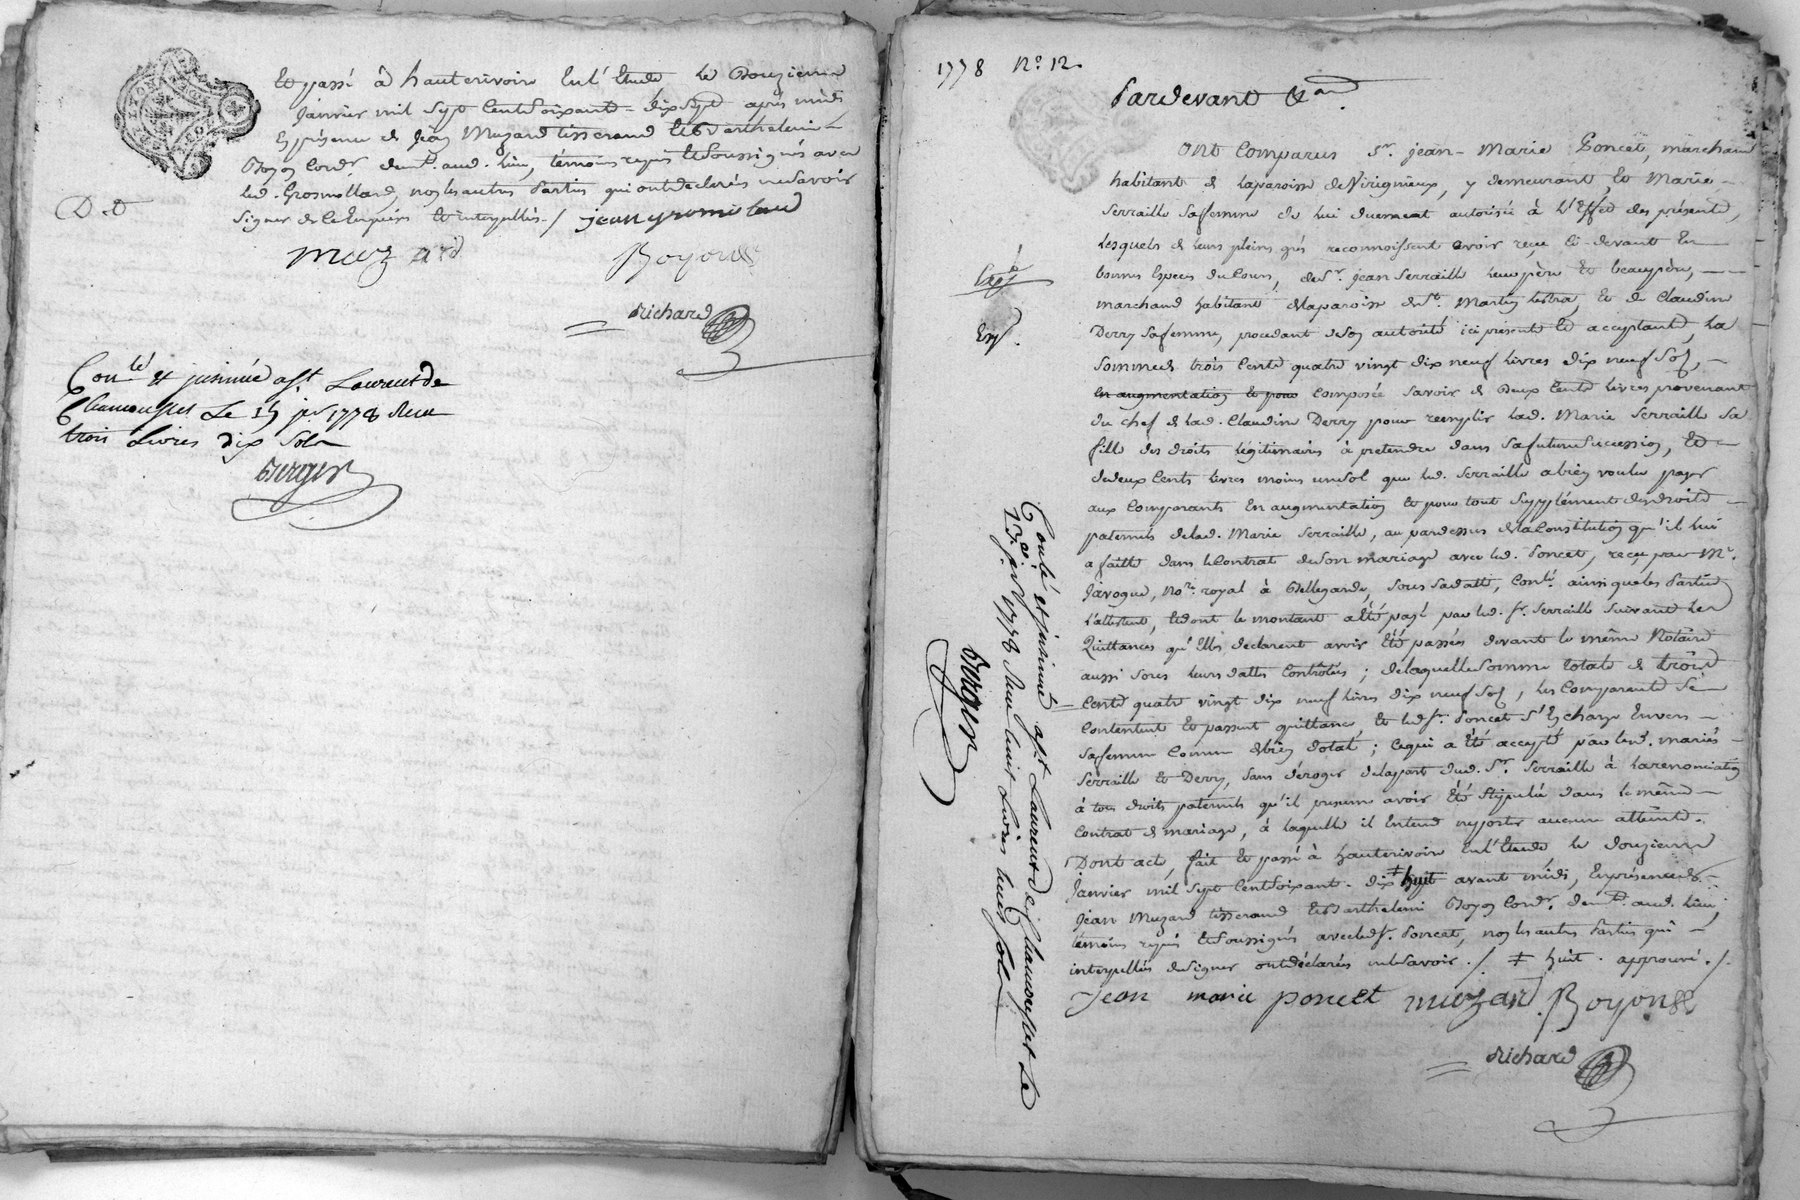 Et passé à hauterivoire En l'Etude le Douzieme
Janvier mil Sept Cent Soixante-dix Sept après midi
En présence de Jean Muzard tisserand Et Barthelemi
Boyon Cordr. demts. aud. lieu, témoins requis Et Soussignés avec
led. Grosmollard, non les autres Parties qui ont declarés ne Savoir
Signer de ce Enquis Et interpellés ./. jean gromolard
muzard Boyon
Richard
Conlé & insinué à St. Laurent de
Chamousset Le 15 jer 1778 Reçu
trois Livres dix Sols
Berger
1778 No. 12
Pardevant &a
Ont Comparus Sr. jean-Marie Poncet, marchand
habitant de la paroisse de Virignieux, y demeurant, Et Marie
Serraille Sa femme de lui duement autorisée à l'Effet des présentes,
Lesquels de leurs pleins grés reconnoissent avoir reçu Ci-devant En
bonnes Espèces du Cours, de Sr. Jean Serraille leur père Et beaupère,
marchand habitant de la paroisse de St. Martin lestra, Et de Claudine
Derry Sa femme, procedant de Son autorité ici présents Et acceptants, La
Somme de trois Cents quatre vingt dix neuf Livres dix neuf Sols,
en augmentation et pour Composée Savoir de Deux Cents Livres provenant
du chef de lad. Claudine Derry pour remplir lad. Marie Serraille Sa
fille des droits légitimaires à pretendre dans Sa future Succession, Et
de deux Cents Livres moins un Sol que led. Serraille a bien voulu payer
aux Comparants En augmentation Et pour tout Supplément des droits
paternels de lad. Marie Serraille, au pardessus de la Constitution qu'il lui
a faitte dans le Contrat de Son mariage avec led. Poncet, reçu par Me.
Javogue, Nore. royal à Bellegarde, Sous Sa datte, Conlé. ainsi que les Parties
l'attestent, Et dont le montant a Eté payé par led. Sr. Serraille Suivant les
Quittances qu'Elles declarent avoir Eté passées devant le même Notaire
aussi Sous leurs dattes Contrôlées ; de laquelle Somme totale de trois
Cents quatre vingt dix neuf Livres dix neuf Sols, les Comparants Se
Contentent Et passent quittance, Et led. Sr. Poncet S'En charge Envers
Sa femme Comme de bien dotal ; Ce qui a Eté accepté par lesd. mariés
Serraille Et Derry, Sans déroger de la part dud. Sr. Serraille à la renonciation
à tous droits paternels qu'il presume avoir Eté Stipulée dans le même
Contrat de mariage, à laquelle il Entend n'y porter aucune atteinte.
Dont acte, fait Et passé à hauterivoire En l'Etude le douzieme
Janvier mil Sept Cent Soixante-dix ‡ huit avant midi, En présence de
Jean Muzard tisserand Et Barthelemi Boyon Cordr. demts. aud. lieu,
témoins requis Et Soussignés avec led. Sr. Poncet, non les autres Parties qui
interpellés de Signer ont déclarés ne Savoir ./. ‡ huit . approuvé ./.
Jean marie poncet muzard Boyon
Richard
Conlé et insinué à St. Laurent de Chamousset Le
15 jer 1778 Reçu huit Livres huit Sols
Berger